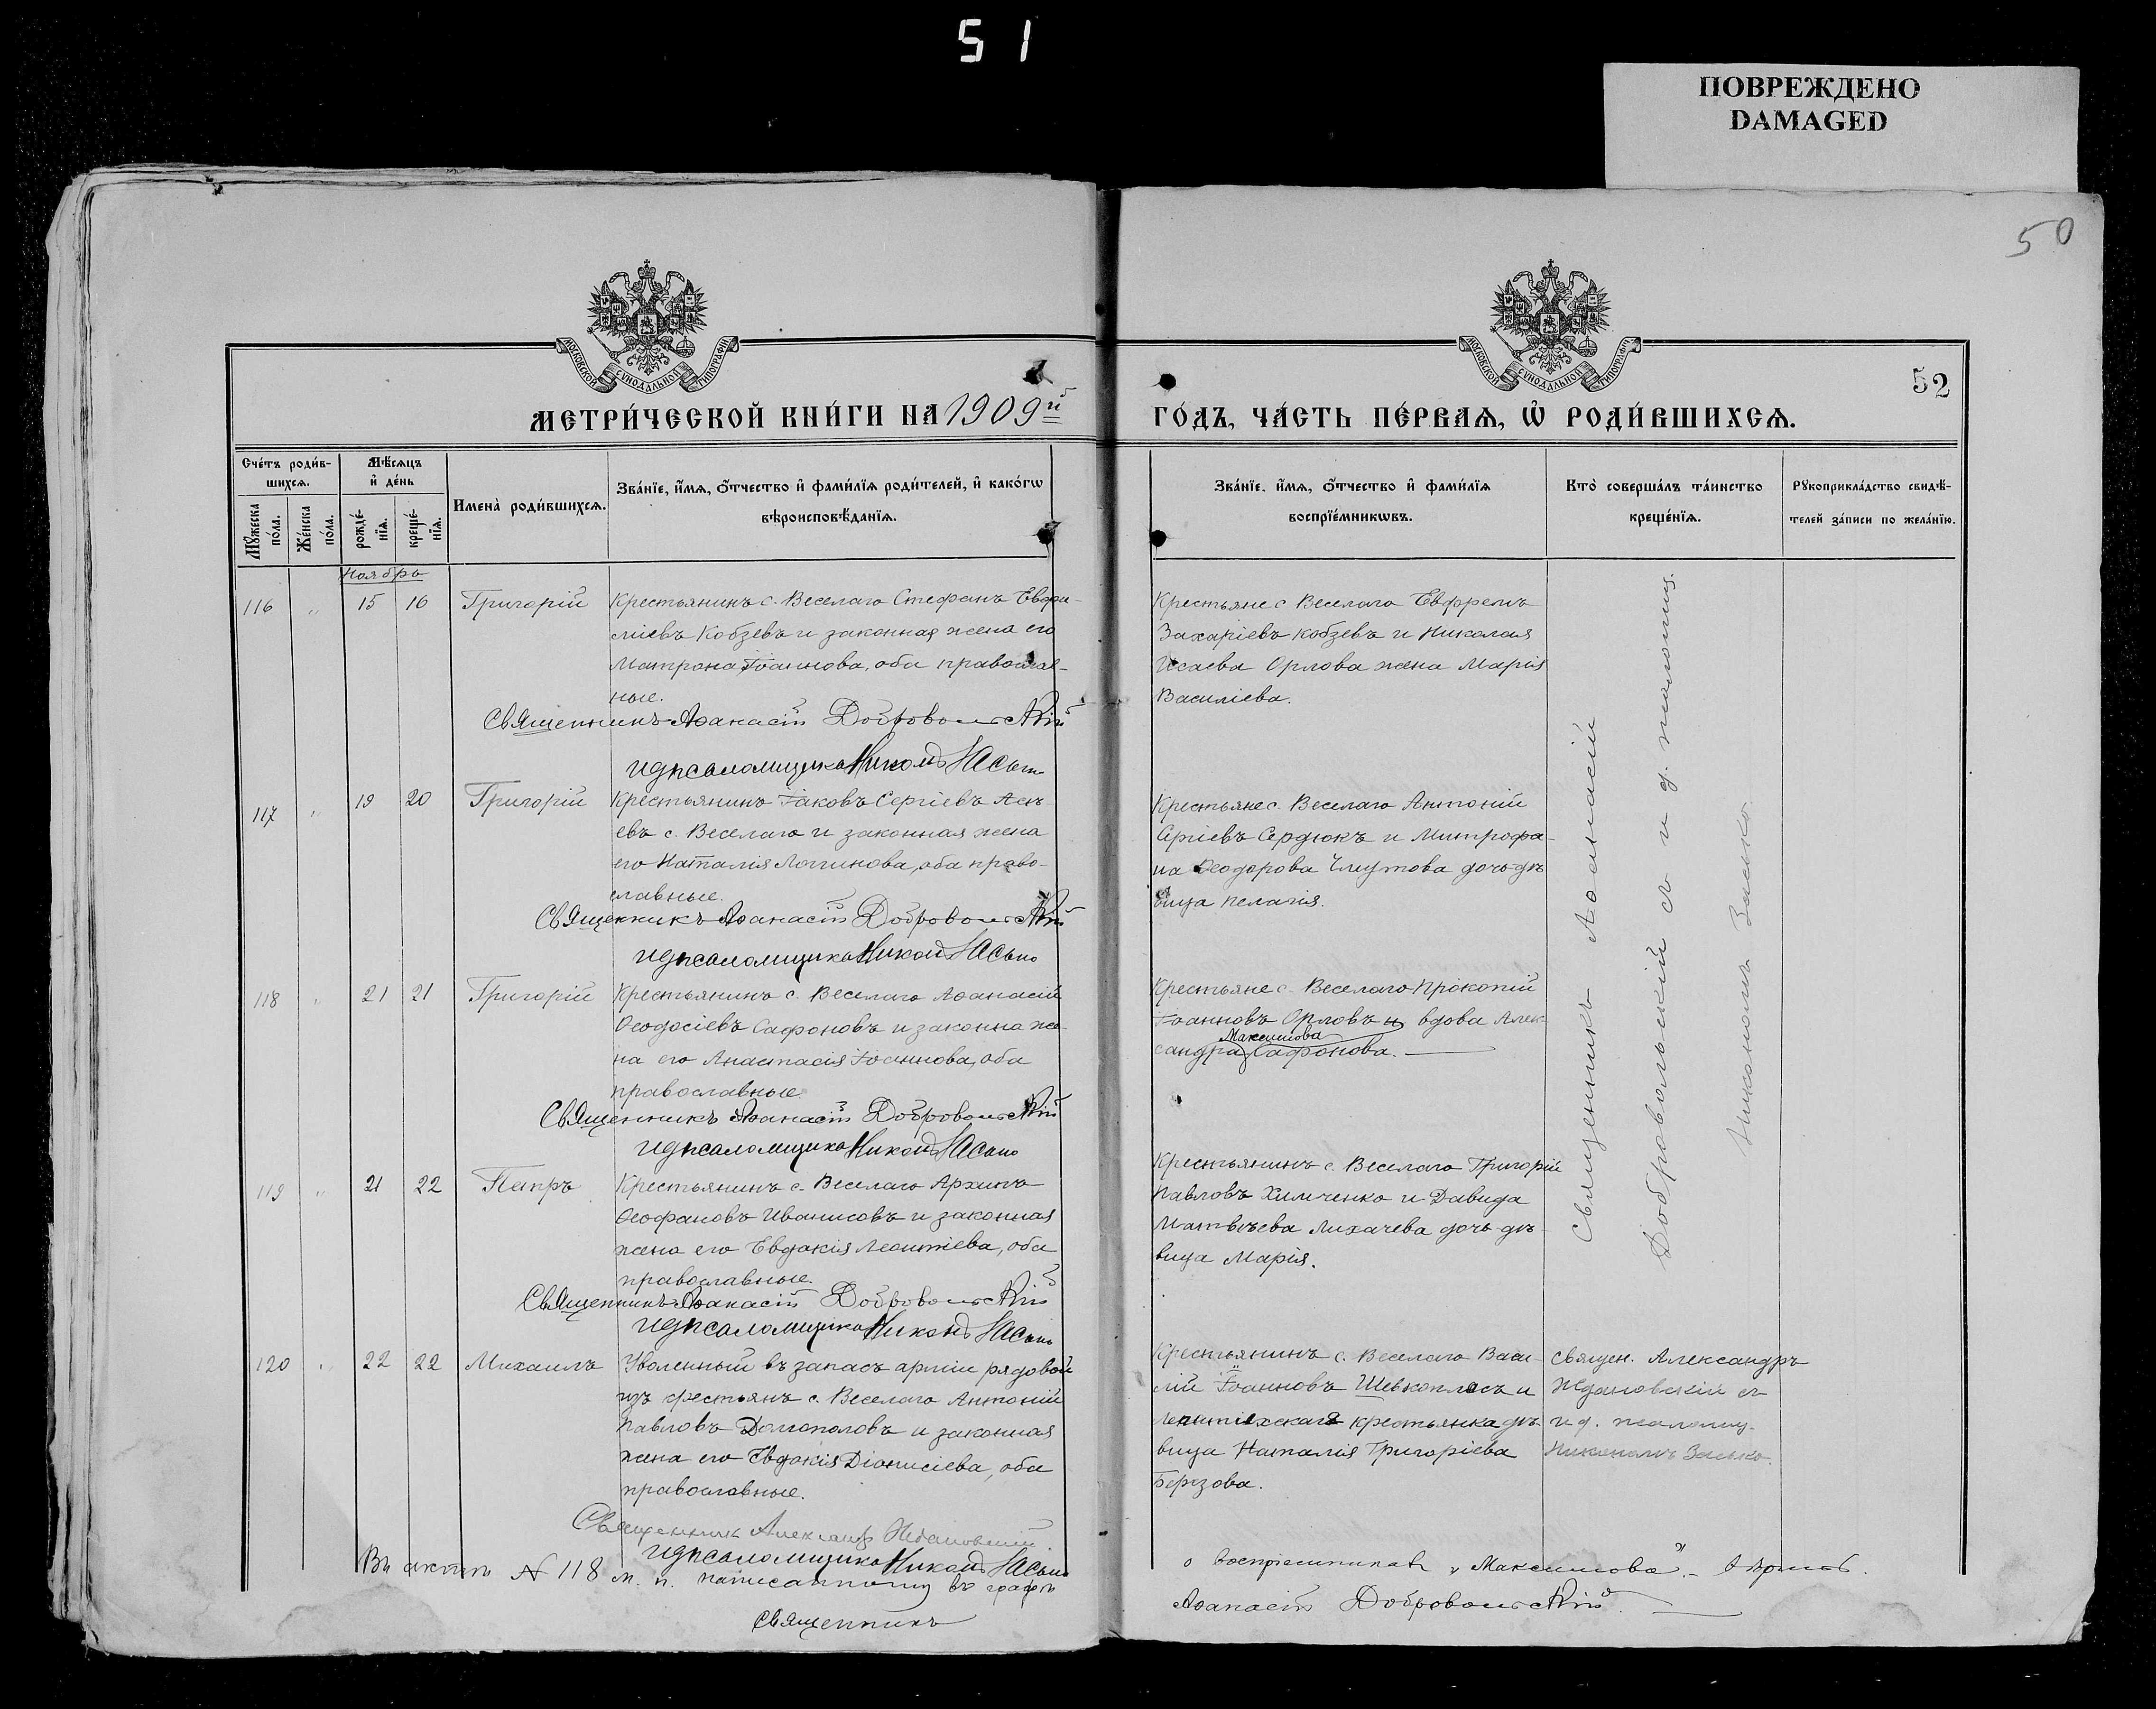 51
ПОВРЕЖДЕНО
DAMAGED
50
52
МОСКОВСКОЙ СѴНОДАЛЬНОЙ ТИПОГРАФІИ
МОСКОВСКОЙ СѴНОДАЛЬНОЙ ТИПОГРАФІИ
МЕТРИ́ЧЕСКОЙ КНИ́ГИ НА 1909й
ГО́ДЪ, ЧА́СТЬ ПЕ́РВАѦ, Ѡ҆ РОДИ́ВШИХСѦ.
Сче́тъ роди́в-
шихсѧ.
Мѣ́сѧцъ
и҆ де́нь
Мꙋ́жеска
по́ла.
Же́нска
по́ла.
рожде́-
нїѧ.
креще́-
нїѧ.
Имена̀ роди́вшихсѧ.
Зва́нїе, и҆́мѧ, ѻ҆́тчество и҆ фами́лїѧ роди́телей, и҆ како́гѡ
вѣроисповѣ́данїѧ.
Зва́нїе, и҆́мѧ, ѻ҆́тчество и҆ фами́лїѧ
воспрїе́мникѡвъ.
Кто̀ соверша́лъ та́инство
креще́нїѧ.
Рꙋкоприкла́дство свидѣ́-
телей за́писи по жела́нїю.
Ноябрь
116 " 15 16 Григорій Крестьянинъ с. Веселаго Стефанъ Евфи-
міевъ Кобзевъ и законная жена его
Матрона Іоаннова, оба православ-
ные.
Священникъ Аѳанасій Добровольскій
и д псаломщика Никонъ Засько
Крестьяне с Веселаго Евфремъ
Захаріевъ Кобзевъ и Николая
Исаева Орлова жена Марія
Василіева.
117 " 19 20 Григорій Крестьянинъ Іаковъ Сергіевъ
евъ с. Веселаго и законная жена
его Наталія Логинова, оба право-
славные.
Священникъ Аѳанасій Добровольскій
и д псаломщика Никонъ Засько
Крестьяне с. Веселаго Антоній
Сергіевъ Сердюкъ и Митрофа-
на Ѳеодорова дочь дѣ-
вица Пелагія.
118 " 21 21 Григорій Крестьянинъ с. Веселаго Аѳанасій
Ѳеодосіевъ Сафоновъ и законна же-
на его Анастасія Іоаннова, оба
православные.
Священникъ Аѳанасій Добровольскій
и д псаломщика Никонъ Засько
Крестьяне с. Веселаго Прокопій
Іоанновъ Орловъ и вдова Алек-
Максимова
сандра Сафонова.
119 " 21 22 Петръ Крестьянинъ с. Веселаго Архипъ
Ѳеофановъ Иванисовъ и законная
жена его Евдокія Леонтіева, оба
православные.
Священникъ Аѳанасій Добровольскій
и д псаломщика Никонъ Засько
Крестьянинъ с. Веселаго Григорій
Павловъ Химченко и Давида
Матвѣева Лихачева дочь дѣ-
вица Марія.
Священникъ Аѳанасій
Добровольскій съ и. д. псаломщ.
Никономъ Засько
120 " 22 22 Михаилъ Уволенный въ запасъ арміи рядовой
изъ крестьянъ с. Веселаго Антоній
Павловъ Долгополовъ и законная
жена его Евдокія Діонисіева, оба
православные.
Священникъ Александр Ждановскій
и д псаломщика Никонъ Засько
Крестьянинъ с. Веселаго Васи-
лій Іоанновъ Шевкоплясъ и
крестьянка дѣ-
вица Наталія Григоріева
Березова.
Священ. Александръ
Ждановскій съ
и д. псаломщ.
Никономъ Засько.
Въ актѣ № 118 м. п. написанному въ графѣ
о воспріемникахъ „Максимова" - вѣрить.
Священникъ
Аѳанасій Добровольскій.